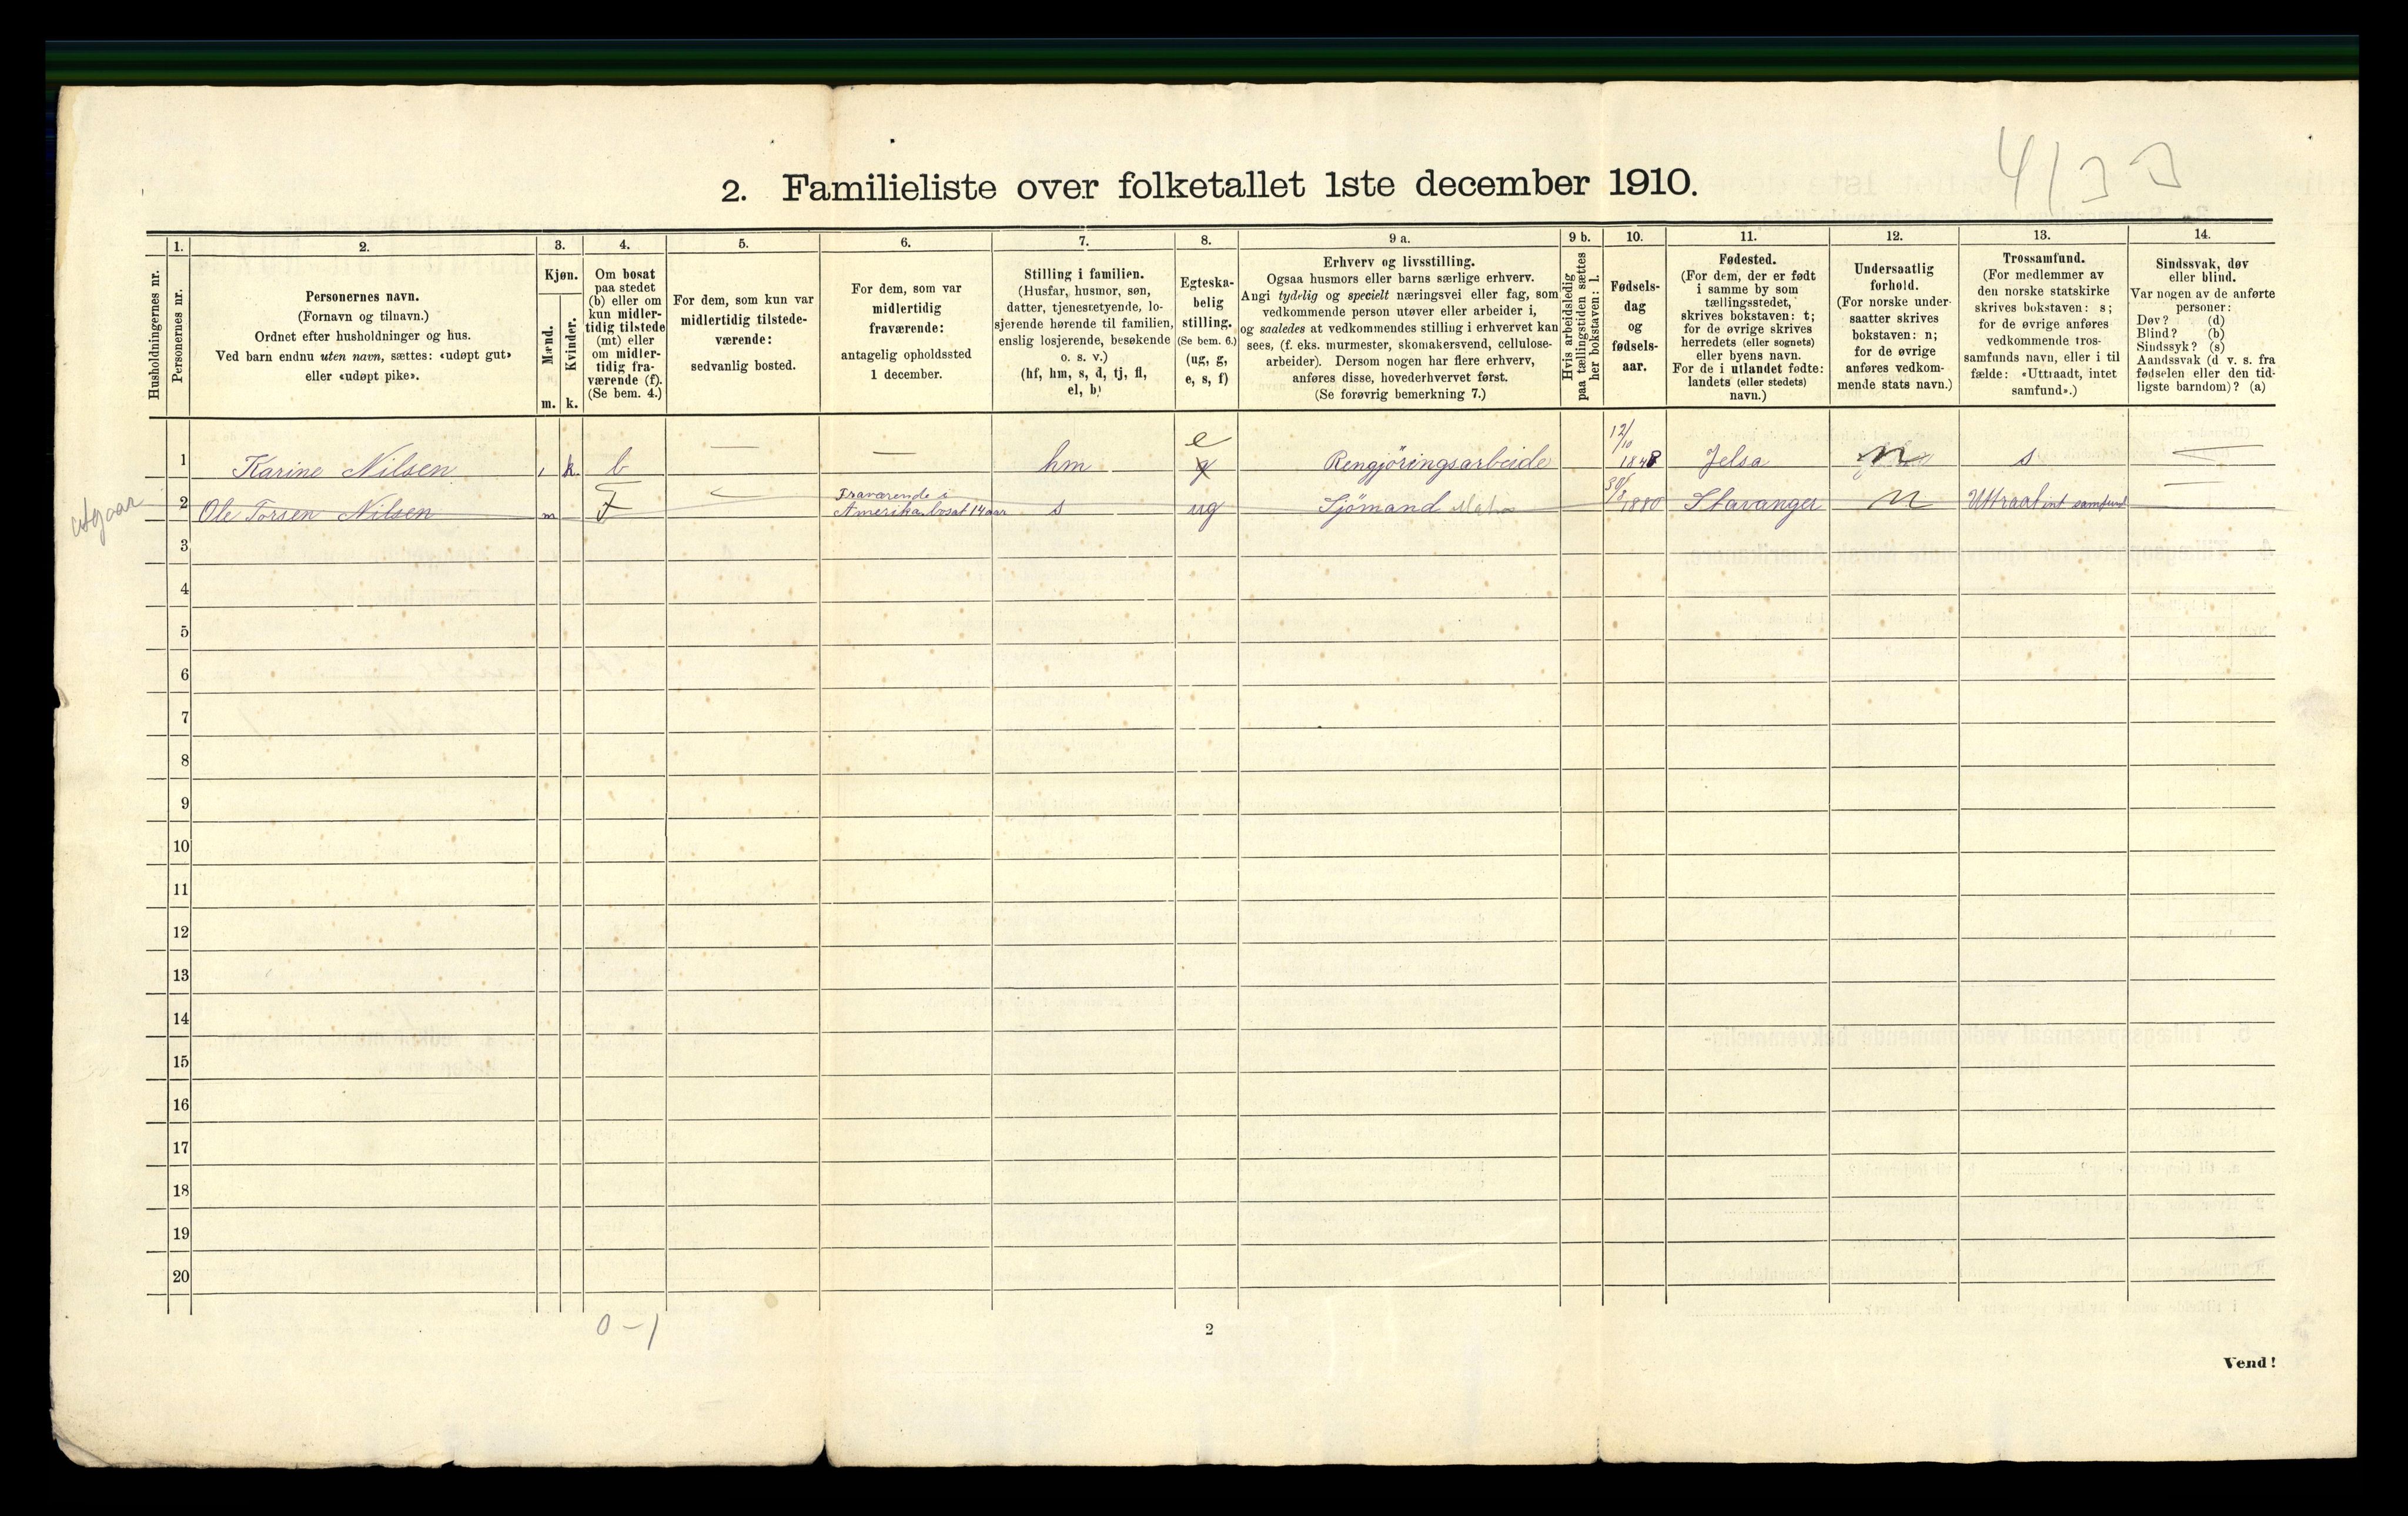 4133
2. Familieliste over folketallet 1ste december 1910.
Husholdningernes nr.
1.
Personernes nr.
2.
Personernes navn.
(Fornavn og tilnavn.)
Ordnet efter husholdninger og hus.
Ved barn endnu uten navn, sættes: «udøpt gut»
eller «udøpt pike».
3.
Kjøn.
Mænd.
Kvinder.
m. k.
4.
Om bosat
paa stedet
(b) eller om
kun midler-
tidig tilstede
(mt) eller
om midler-
tidig fra-
værende (f).
(Se bem. 4.)
5.
For dem, som kun var
midlertidig tilstede-
værende:
sedvanlig bosted.
6.
For dem, som var
midlertidig
fraværende:
antagelig opholdssted
1 december.
7.
Stilling i familien.
(Husfar, husmor, søn,
datter, tjenestetyende, lo-
sjerende hørende til familien,
enslig losjerende, besøkende
o. s. v.)
(hf, hm, s, d, tj, fl,
el, b)
8.
Egteska-
belig
stilling.
(Se bem. 6.)
(ug, g,
e, s, f)
9 a.
Erhverv og livsstilling.
Ogsaa husmors eller barns særlige erhverv.
Angi tydelig og specielt næringsvei eller fag, som
vedkommende person utøver eller arbeider i,
og saaledes at vedkommendes stilling i erhvervet kan
sees, (f. eks. murmester, skomakersvend, cellulose-
arbeider). Dersom nogen har flere erhverv,
anføres disse, hovederhvervet først.
(Se forøvrig bemerkning 7.)
9 b.
Hvis arbeidsledig
paa tællingstiden sættes
her bokstaven: l.
10.
Fødsels-
dag
og
fødsels-
aar.
11.
Fødested.
(For dem, der er født
i samme by som
tællingsstedet,
skrives bokstaven: t;
for de øvrige skrives
herredets (eller sognets)
eller byens navn.
For de i utlandet fødte:
landets (eller stedets)
navn.)
12.
Undersaatlig
forhold.
(For norske under-
saatter skrives
bokstaven: n;
for de øvrige
anføres vedkom-
mende stats navn.)
13.
Trossamfund.
(For medlemmer av
den norske statskirke
skrives bokstaven: s;
for de øvrige anføres
vedkommende tros-
samfunds navn, eller i til-
fælde: «Uttraadt, intet
samfund».)
14.
Sindssvak, døv
eller blind.
Var nogen av de anførte
personer:
Døv? (d)
Blind? (b)
Sindssyk? (s)
Aandssvak (d v. s. fra
fødselen eller den tid-
ligste barndom)? (a)
1 Karine Nilsen k b — — hm g e Rengjöringsarbeide 12/10 1848 Jelsa n s —
utgaar 2 Ole Torsen Nilsen m f — Fraværende i Amerika bosat 14 aar s ug Sjömand 30/8 1880 Stavanger n Uttraat int samfund —
3
4
5
6
7
8
9
10
11
12
13
14
15
16
17
18
19
20
0-1
2
Vend!